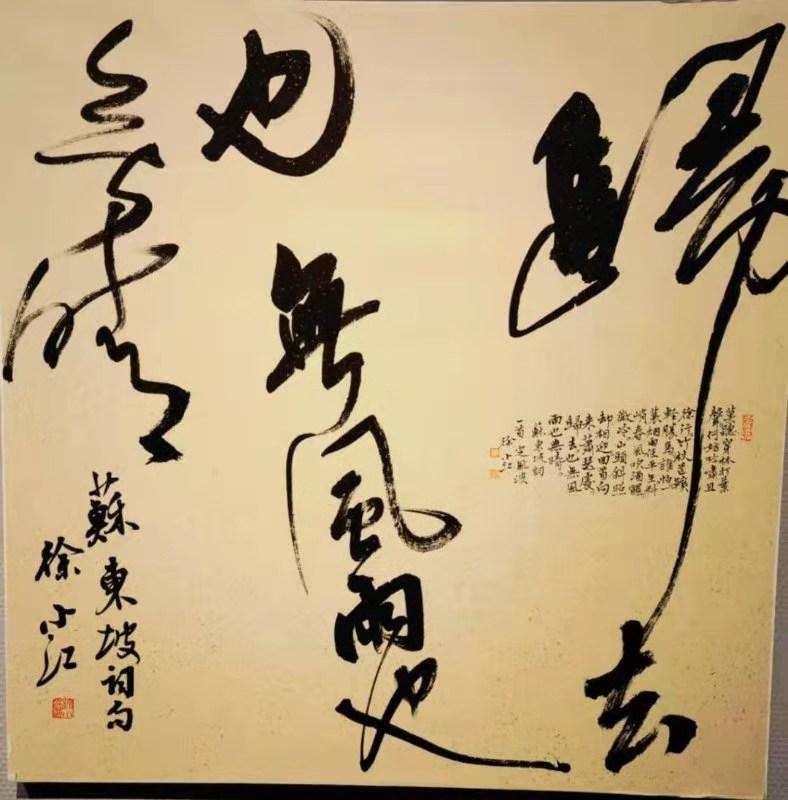 歸去
也無風雨也
無晴
蘇東坡詞句
徐小江
莫聽穿林打葉
聲何妨吟嘯且
徐行竹杖芒鞋
輕勝馬誰怕一
蓑烟雨任平生料
峭春風吹酒醒
微冷山頭斜照
却相迎回首向
来蕭瑟處
歸去也無風
雨也無晴
蘇東坡詞
一首定風波
徐小江